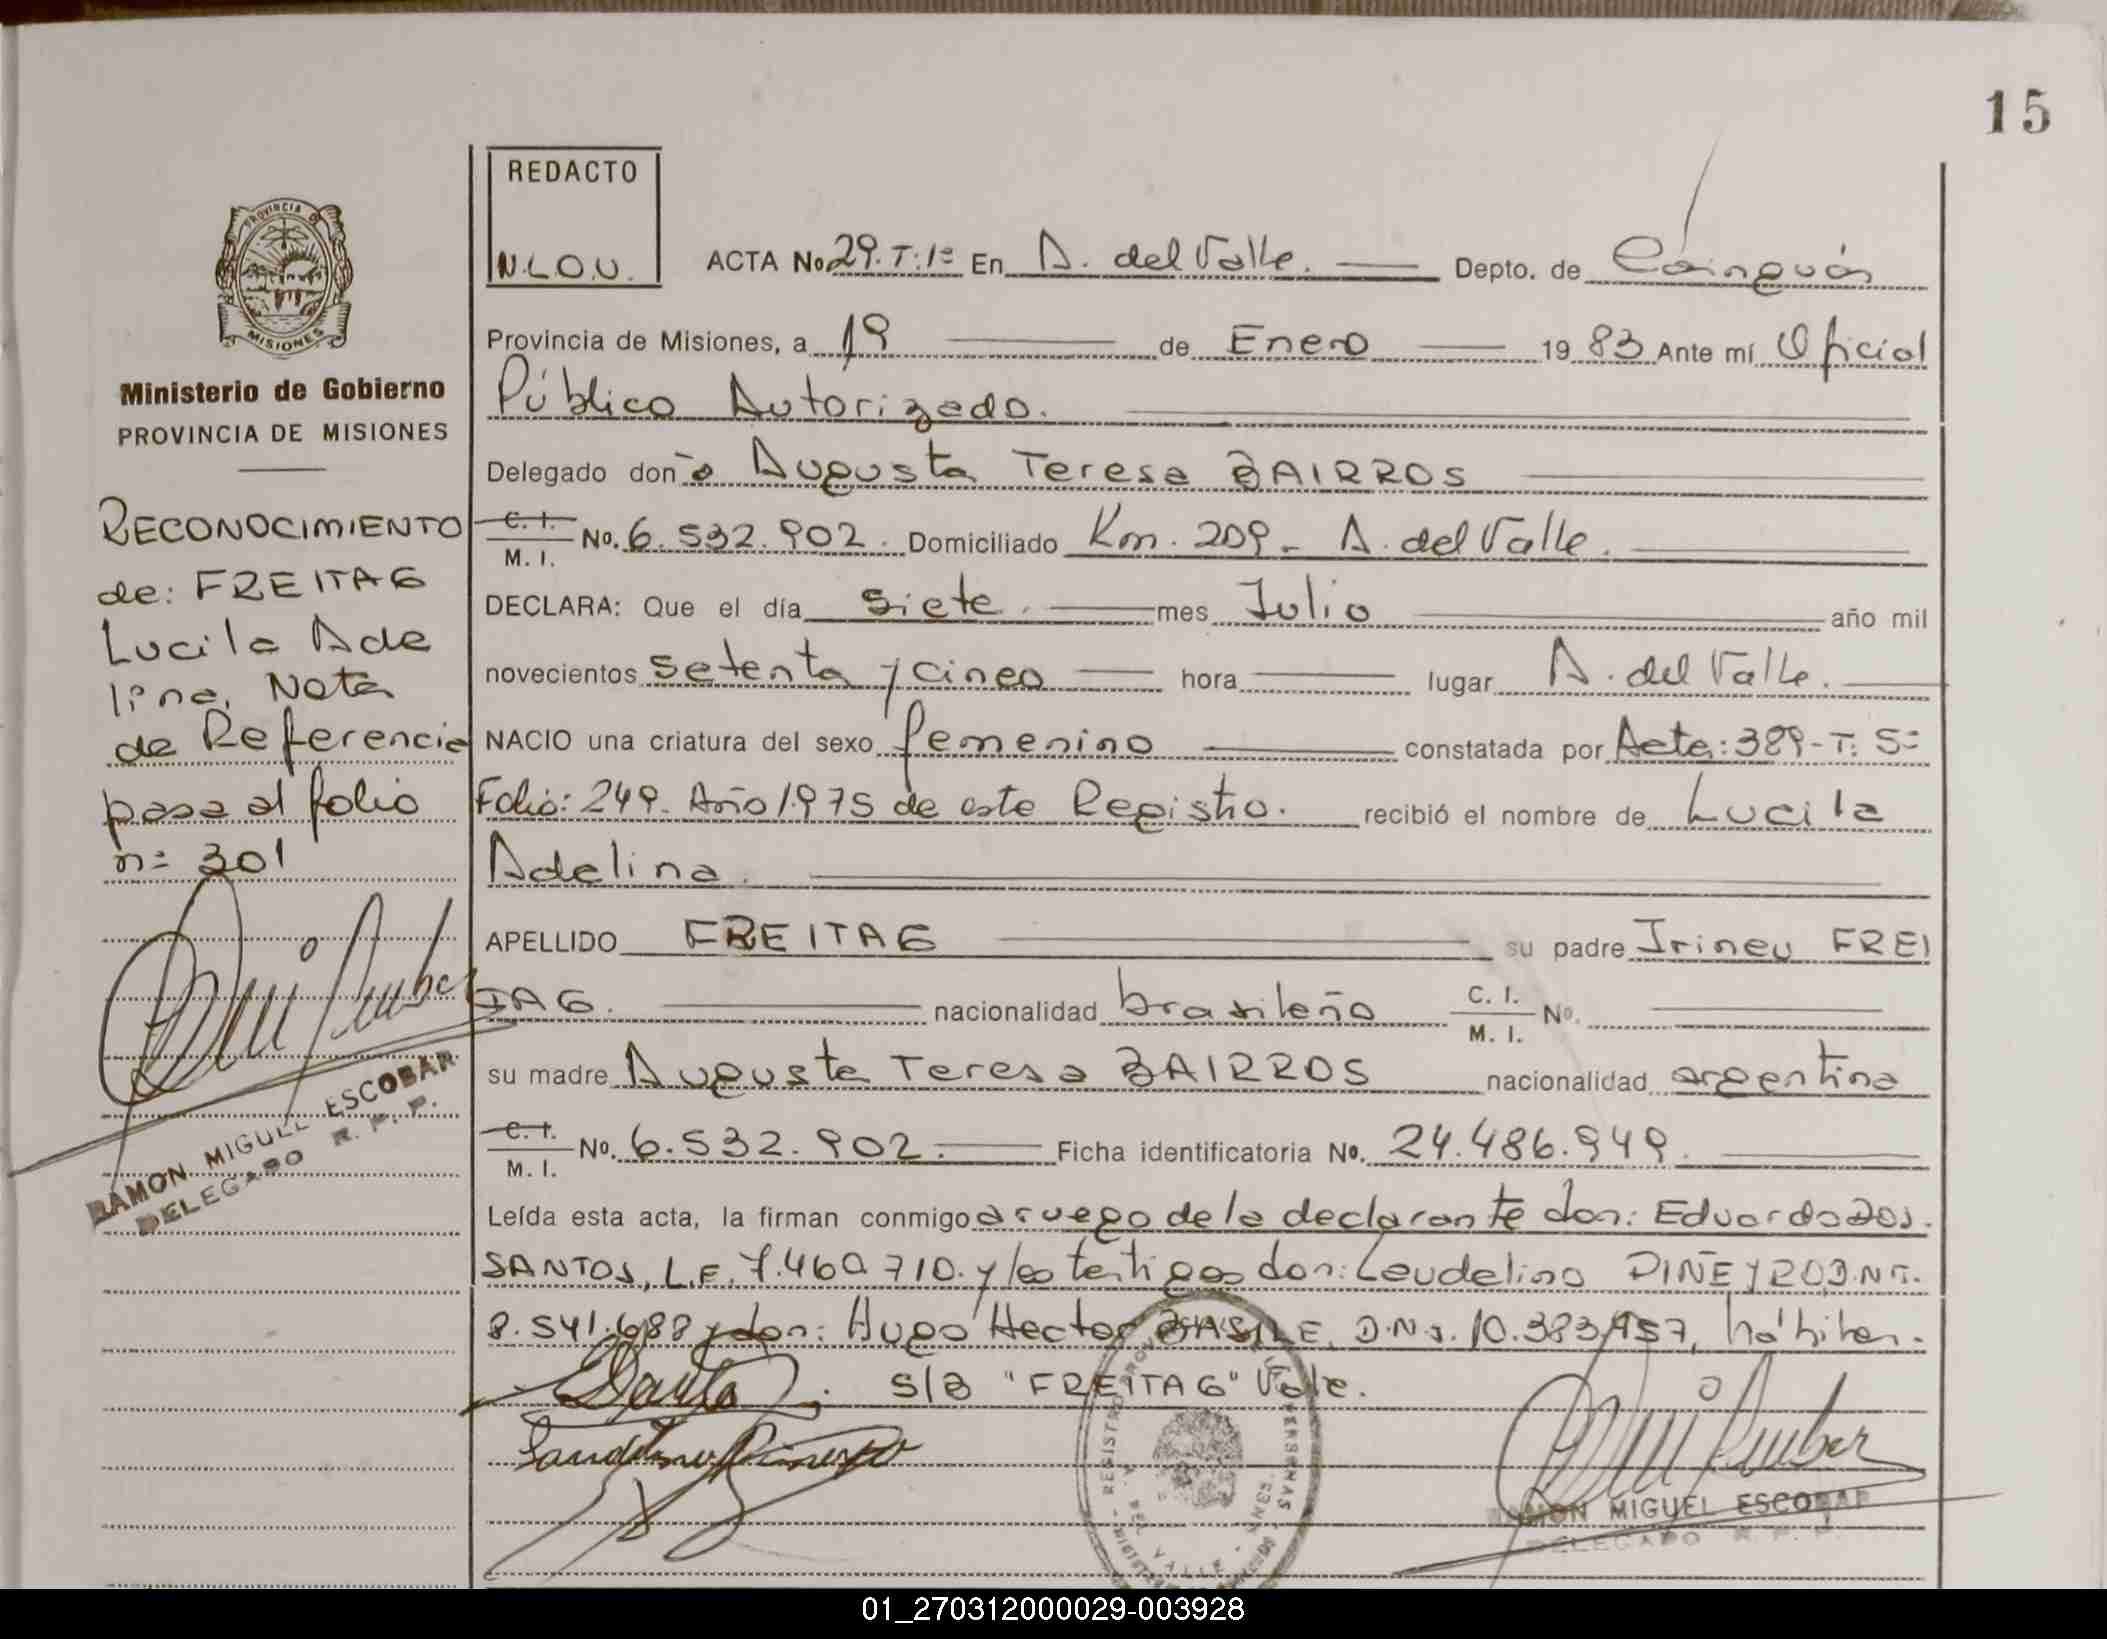 15
REDACTO
N.L.O.U.
ACTA No 29. T: 1º En A. del Valle. Depto. de Cainguás
Provincia de Misiones, a 19 de Enero 19 83 Ante mí Oficial
Público Autorizado.
Delegado don ña Augusta Teresa BAIRROS
C. I. M. I. No. 6.532.902. Domiciliado Km. 209 - A. del Valle.
DECLARA: Que el día siete. mes Julio año mil
novecientos setenta y cinco hora lugar A. del Valle.
NACIO una criatura del sexo femenino constatada por Acta: 389-T: 5º
Folio: 249. Año 1975 de este Registro. recibió el nombre de Lucila
Adelina.
APELLIDO FREITAG su padre Irineu FREI
TAG. nacionalidad brasileño C. I. M. I. No.
su madre Augusta Teresa BAIRROS nacionalidad argentina
C. I. M. I. No. 6.532.902. Ficha identificatoria No. 24.486.949.
Leída esta acta, la firman conmigo a ruego de la declarante don: Eduardo DOS.
SANTOS, L.E. 7.460.710. y los testigos don: Leudelino PIÑEYRO D.N.I.
8.541.688 y don: Hugo Hector BASILE, D.N.I. 10.383.957, hábiles.
S/B "FREITAG" Vale.
RAMON MIGUEL ESCOBAR
DELEGADO R. P. P.
PROVINCIA DE
MISIONES
Ministerio de Gobierno
PROVINCIA DE MISIONES
RECONOCIMIENTO
de: FREITAG
Lucila Ade
lina. Nota
de Referencia
pasa al folio
nº 301
RAMON MIGUEL ESCOBAR
DELEGADO R. P. P.
01_270312000029-003928